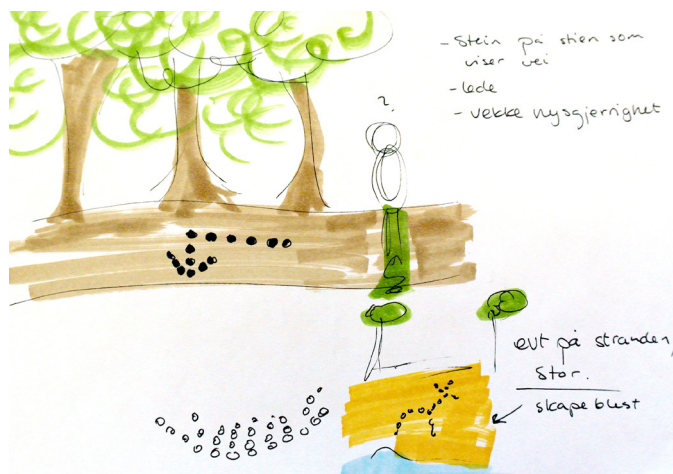 - Stein på stien som
viser vei
- lede
- vekke nysgjerrighet
?
evt på stranden,
Stor.
skapeblest